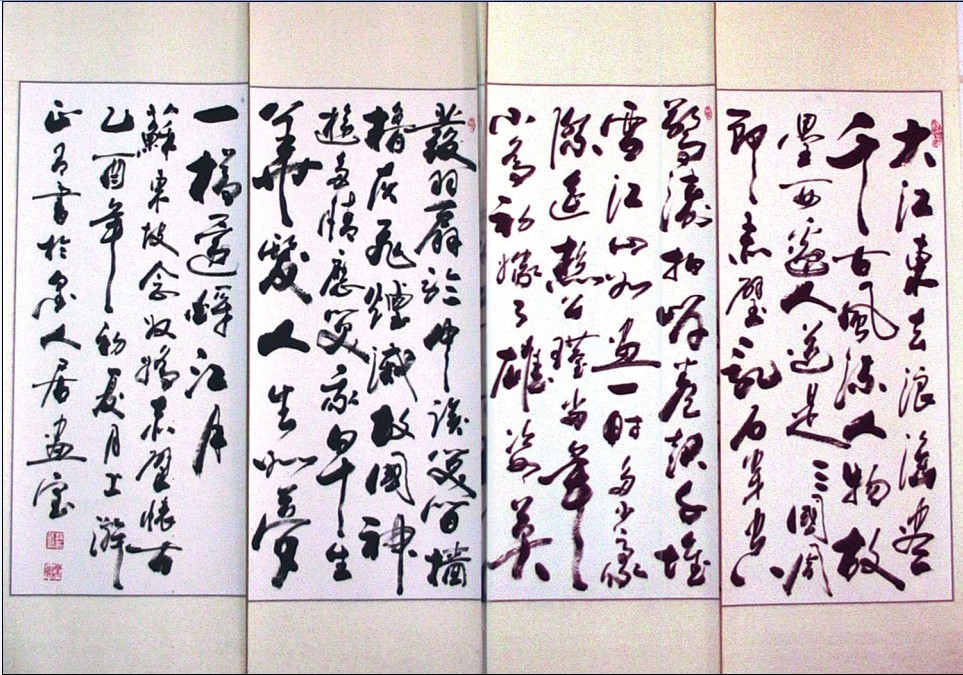 大江東去浪淘盡
千古風流人物故
壘西邊人道是三國周
郎赤壁亂石穿空
驚濤拍岸卷起千堆
雪江山如畫一時多少豪
傑遙想公瑾當年
小喬初嫁了雄姿英
發羽扇綸巾談笑間檣
櫓灰飛煙滅故國神
遊多情應笑我早生
華髮人生如夢
一樽還酹江月
蘇東坡念奴嬌赤壁懷古
乙酉年初夏月上澣
正書於人居畫室